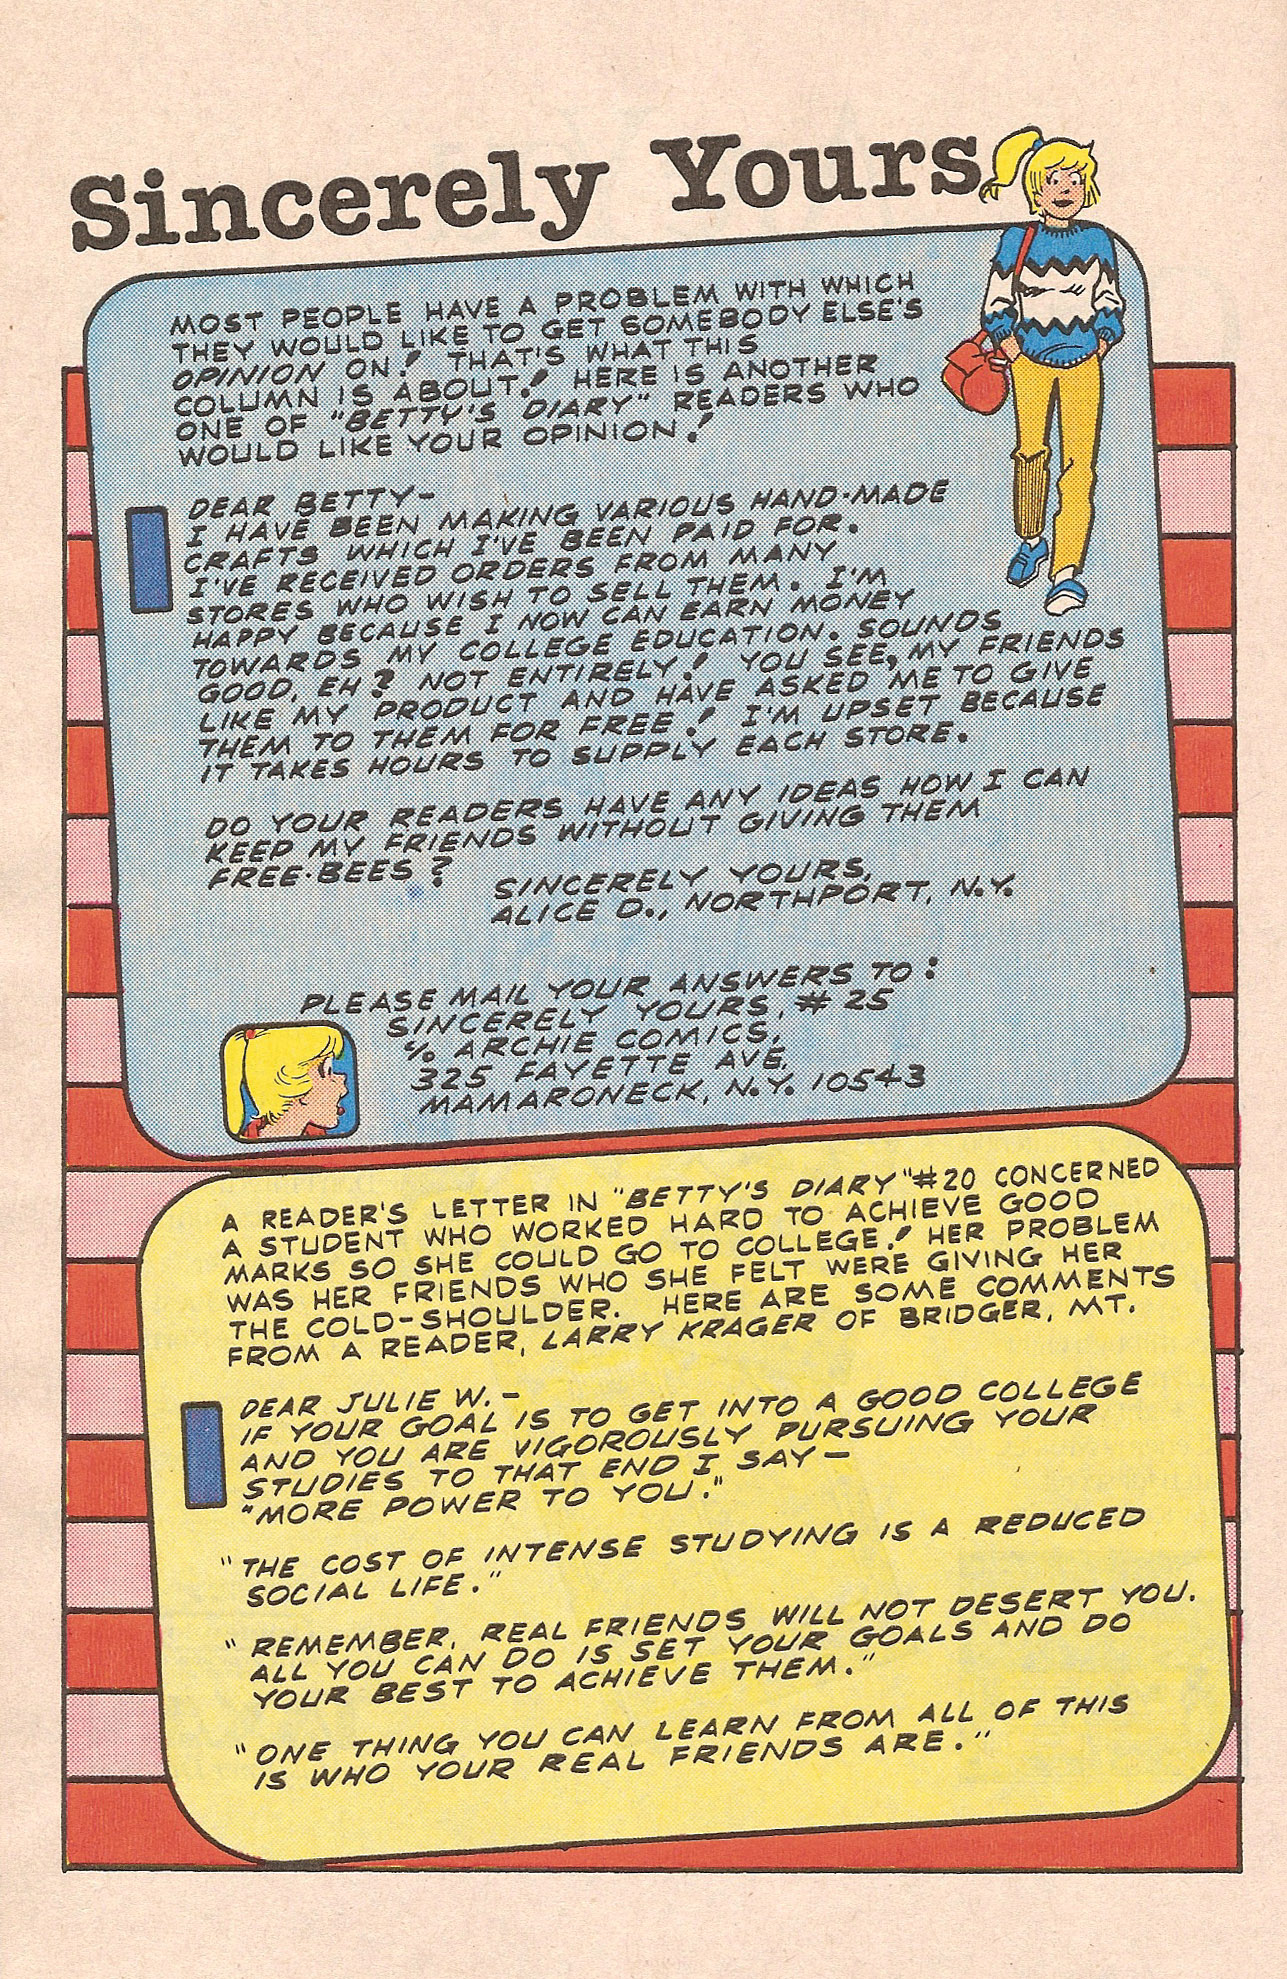 Sincerely Yours
MOST PEOPLE HAVE A PROBLEM WITH WHICH
THEY WOULD LIKE TO GET SOMEBODY ELSE'S
OPINION ON! THAT'S WHAT THIS
COLUMN IS ABOUT! HERE IS ANOTHER
ONE OF "BETTY'S DIARY" READERS WHO
WOULD LIKE YOUR OPINION!
DEAR BETTY-
I HAVE BEEN MAKING VARIOUS HAND-MADE
CRAFTS WHICH I'VE BEEN PAID FOR.
I'VE RECEIVED ORDERS FROM MANY
STORES WHO WISH TO SELL THEM. I'M
HAPPY BECAUSE I NOW CAN EARN MONEY
TOWARDS MY COLLEGE EDUCATION. SOUNDS
GOOD, EH? NOT ENTIRELY! YOU SEE, MY FRIENDS
LIKE MY PRODUCT AND HAVE ASKED ME TO GIVE
THEM TO THEM FOR FREE! I'M UPSET BECAUSE
IT TAKES HOURS TO SUPPLY EACH STORE.
DO YOUR READERS HAVE ANY IDEAS HOW I CAN
KEEP MY FRIENDS WITHOUT GIVING THEM
FREE-BEES?
SINCERELY YOURS,
ALICE D., NORTHPORT, N.Y.
PLEASE MAIL YOUR ANSWERS TO:
SINCERELY YOURS, #25
℅ ARCHIE COMICS,
325 FAYETTE AVE.
MAMARONECK, N.Y. 10543
A READER'S LETTER IN "BETTY'S DIARY" #20 CONCERNED
A STUDENT WHO WORKED HARD TO ACHIEVE GOOD
MARKS SO SHE COULD GO TO COLLEGE! HER PROBLEM
WAS HER FRIENDS WHO SHE FELT WERE GIVING HER
THE COLD-SHOULDER. HERE ARE SOME COMMENTS
FROM A READER, LARRY KRAGER OF BRIDGER, MT.
DEAR JULIE W. -
IF YOUR GOAL IS TO GET INTO A GOOD COLLEGE
AND YOU ARE VIGOROUSLY PURSUING YOUR
STUDIES TO THAT END I SAY -
"MORE POWER TO YOU."
"THE COST OF INTENSE STUDYING IS A REDUCED
SOCIAL LIFE."
"REMEMBER, REAL FRIENDS WILL NOT DESERT YOU.
ALL YOU CAN DO IS SET YOUR GOALS AND DO
YOUR BEST TO ACHIEVE THEM."
"ONE THING YOU CAN LEARN FROM ALL OF THIS
IS WHO YOUR REAL FRIENDS ARE."